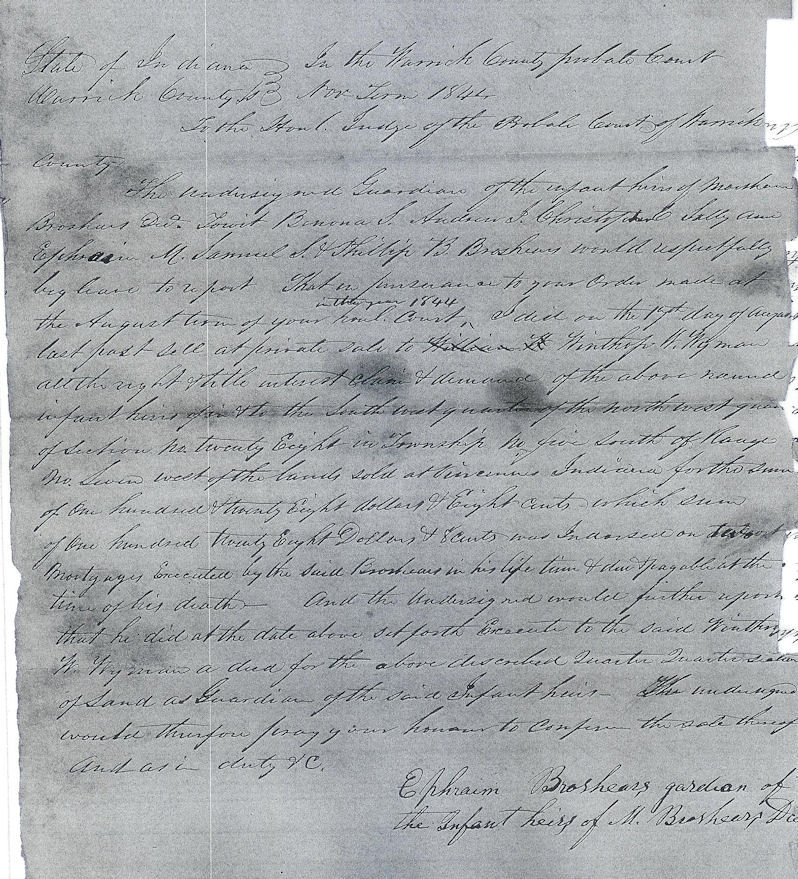 State of Indiana } In the Warrick County probate Court
Warrick County Ss } Nov Term 1844
To the Honl. Judge of the Probate Court of Warrick
County
The undersigned Guardian of the infant heirs of Marsham
Broshears Decd. Towit Benona S. Andrew J. Christopher C Sally Ann
Ephraim M. Samuel S. & Phillip B. Broshears would respectfully
beg leave to report That in pursuance to your Order made at
in the year 1844
the August term of your Honl. Court I did on the day of August
last past sell at private sale to Winthrop W. Wyman
all the right & title interest claim & demand of the above named
infant heirs of in & to the South west quarter of the north west quar
of Section No. twenty Eight in Township No five South of Range
No. Seven west of the lands sold at Vincennes Indiana for the sum
of One hundred & twenty Eight dollars & Eight cents which sum
of One hundred twenty Eight Dollars & 8 cents was Indorsed on two
Mortgages Executed by the said Broshears in his life time & due & payable at the
time of his death And the undersigned would further
that he did at the date above set forth Execute to the said Winthrop
W. Wyman a deed for the above described Quarter Quarter
of Land as Guardian of the said Infant heirs The undersigned
would therefore pray your honour to confirm the sale thereof
And as in duty &C.
Ephraim Broshears gardian of
the Infant heirs of M. Broshears Dec